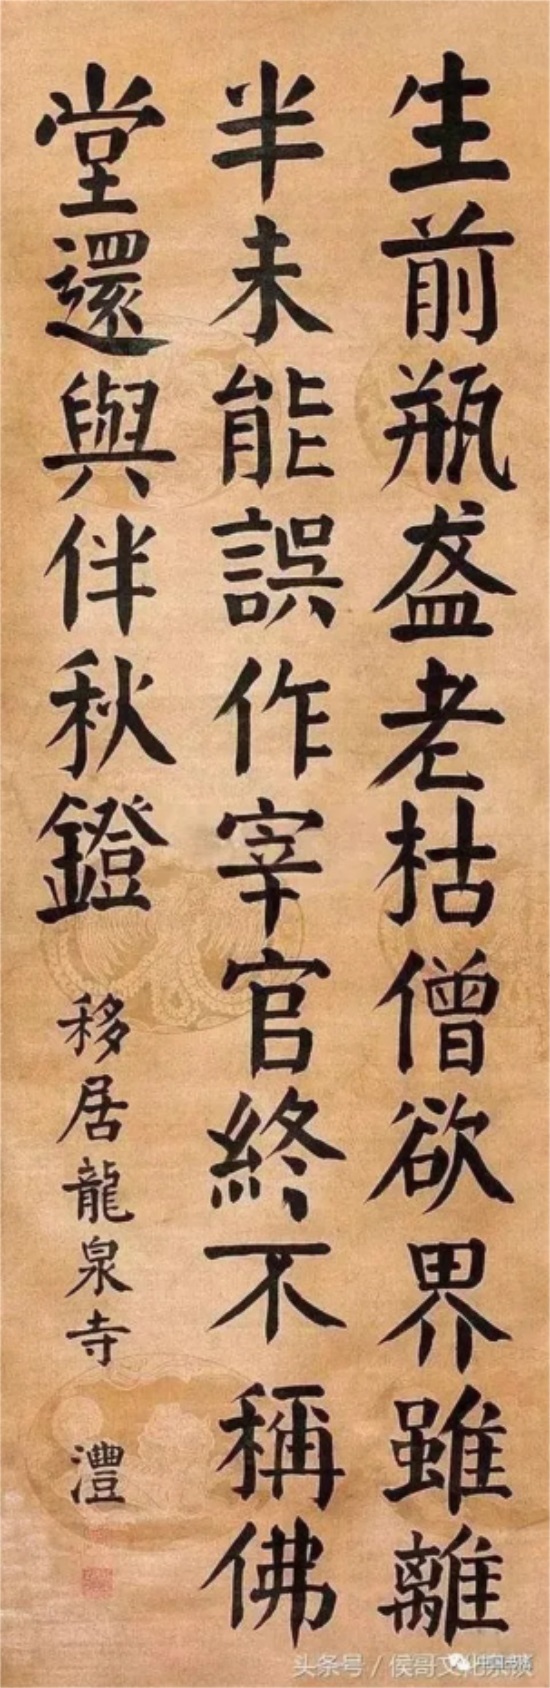 生前瓶盔老枯僧欲界雖離
半未能誤作宰官終不稱佛
堂還與伴秋鐙
移居龍泉寺
澧
头条号 / 侯哥文化杂谈